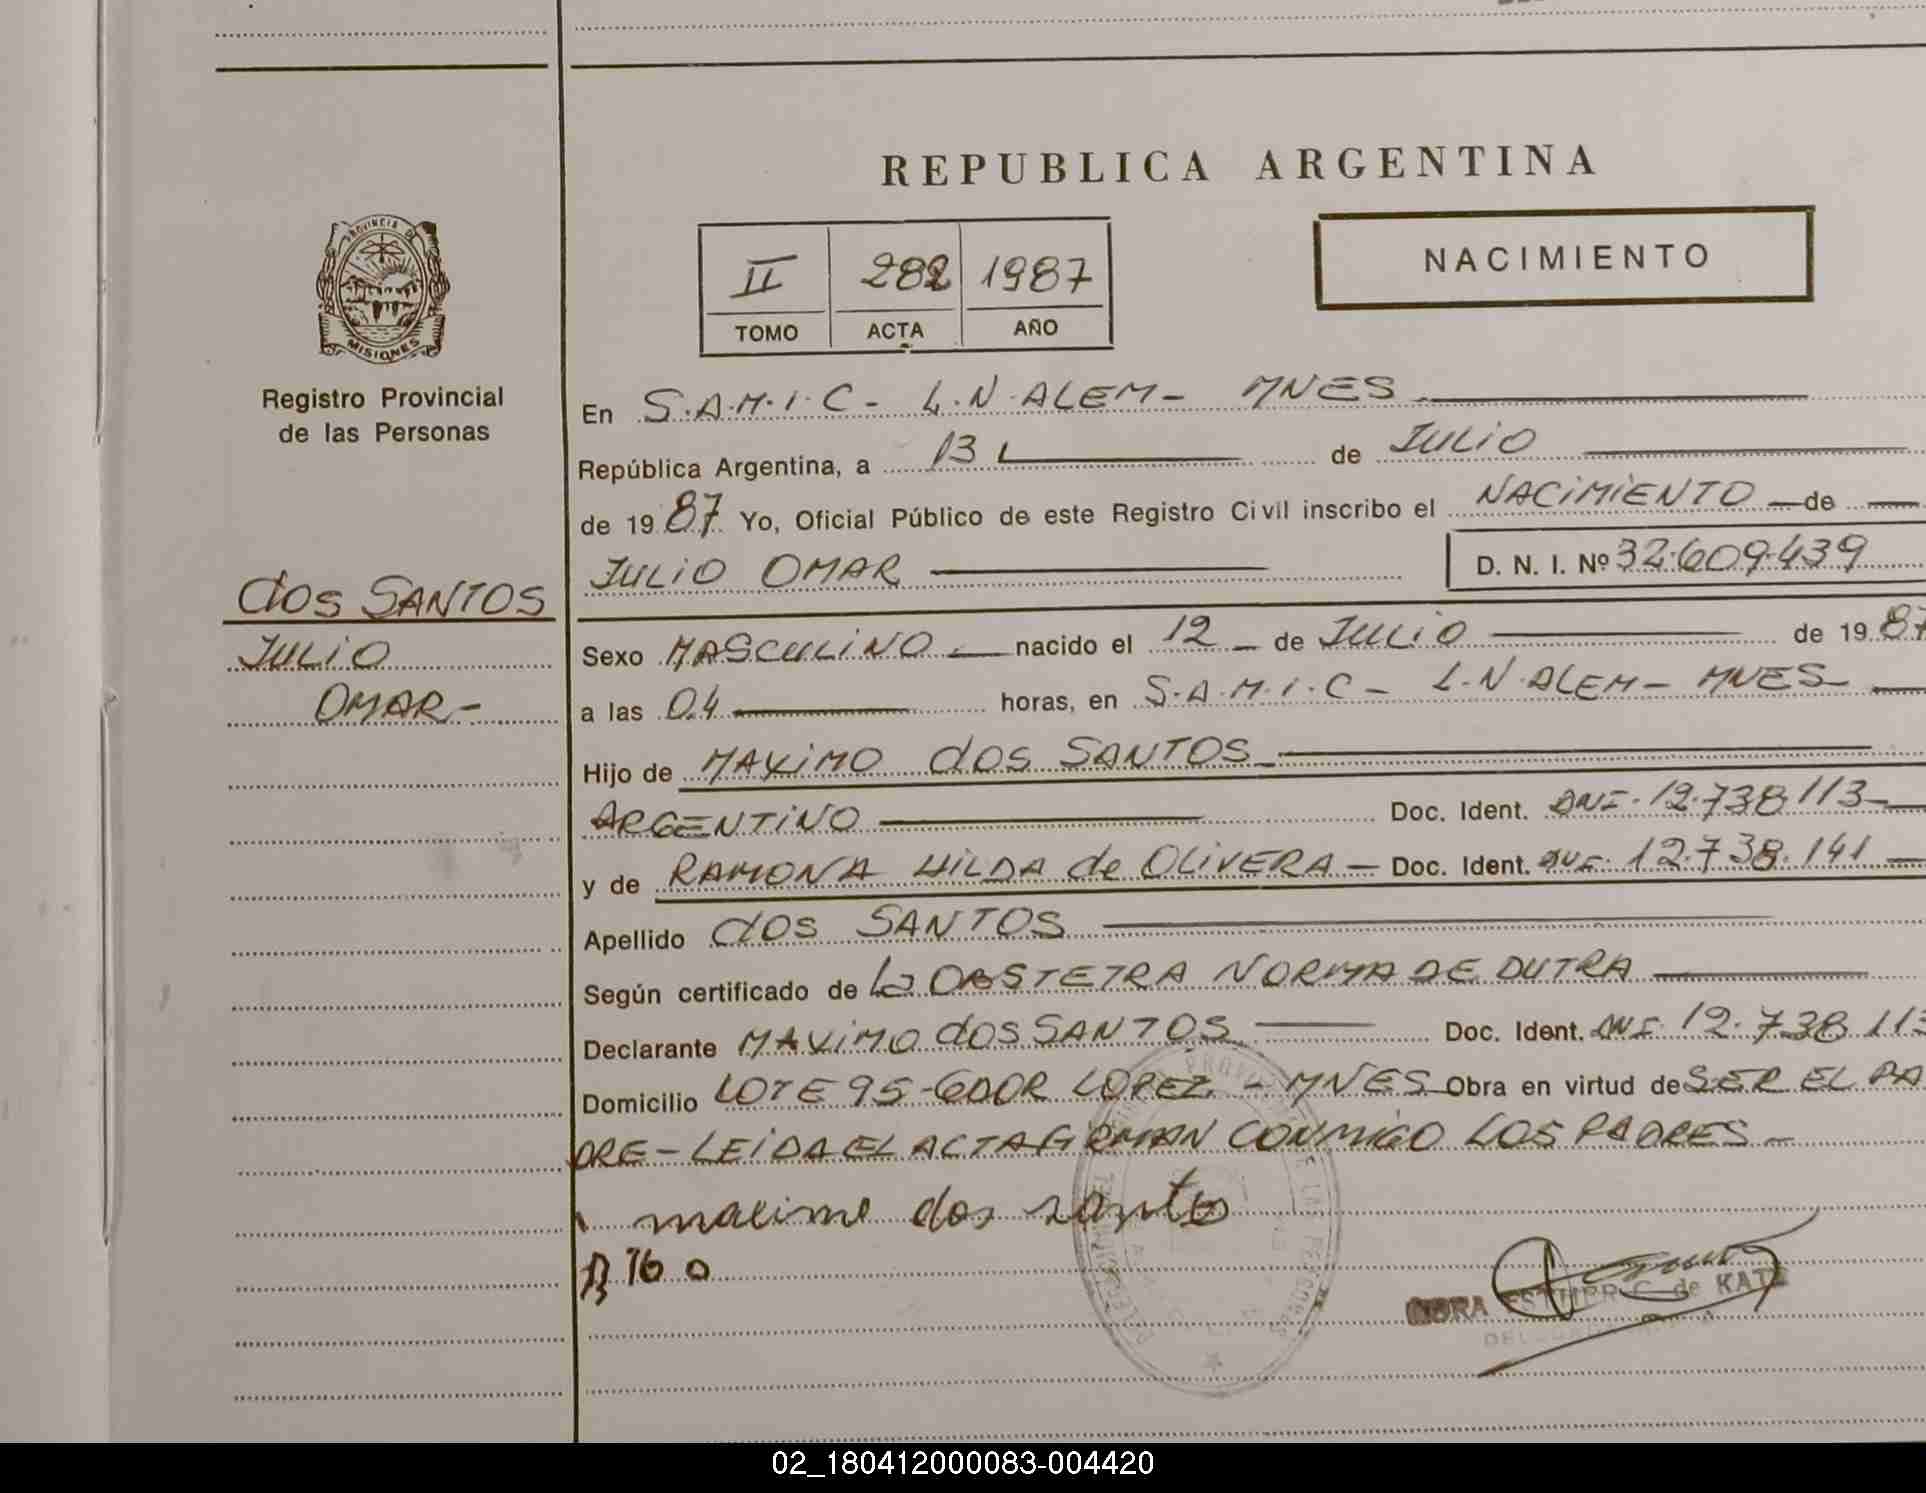 REPUBLICA ARGENTINA
PROVINCIA DE
MISIONES
Registro Provincial
de las Personas
II 282 1987
TOMO ACTA AÑO
NACIMIENTO
En S.A.M.I.C - L.N.ALEM - MNES
República Argentina, a 13 de JULIO
de 1987 Yo, Oficial Público de este Registro Civil inscribo el NACIMIENTO de
JULIO OMAR D. N. I. Nº 32.609.439
DOS SANTOS
JULIO
OMAR-
Sexo MASCULINO nacido el 12 de JULIO de 1987
a las 04 horas, en S.A.M.I.C - L.N.ALEM - MNES
Hijo de MAXIMO dos SANTOS
ARGENTINO Doc. Ident. DNI. 12.738.113
y de RAMONA HILDA de OLIVERA - Doc. Ident. DNI. 12.738.141
Apellido dos SANTOS
Según certificado de La OBSTETRA NORMA DE DUTRA
Declarante MAXIMO dos SANTOS Doc. Ident. DNI. 12.738.113
Domicilio LOTE 95-GDOR LOPEZ - MNES Obra en virtud de SER EL PA
DRE - LEIDA EL ACTA FIRMAN CONMIGO LOS PADRES -
maximo dos santo
ESTHER C. de KATZ
02_180412000083-004420